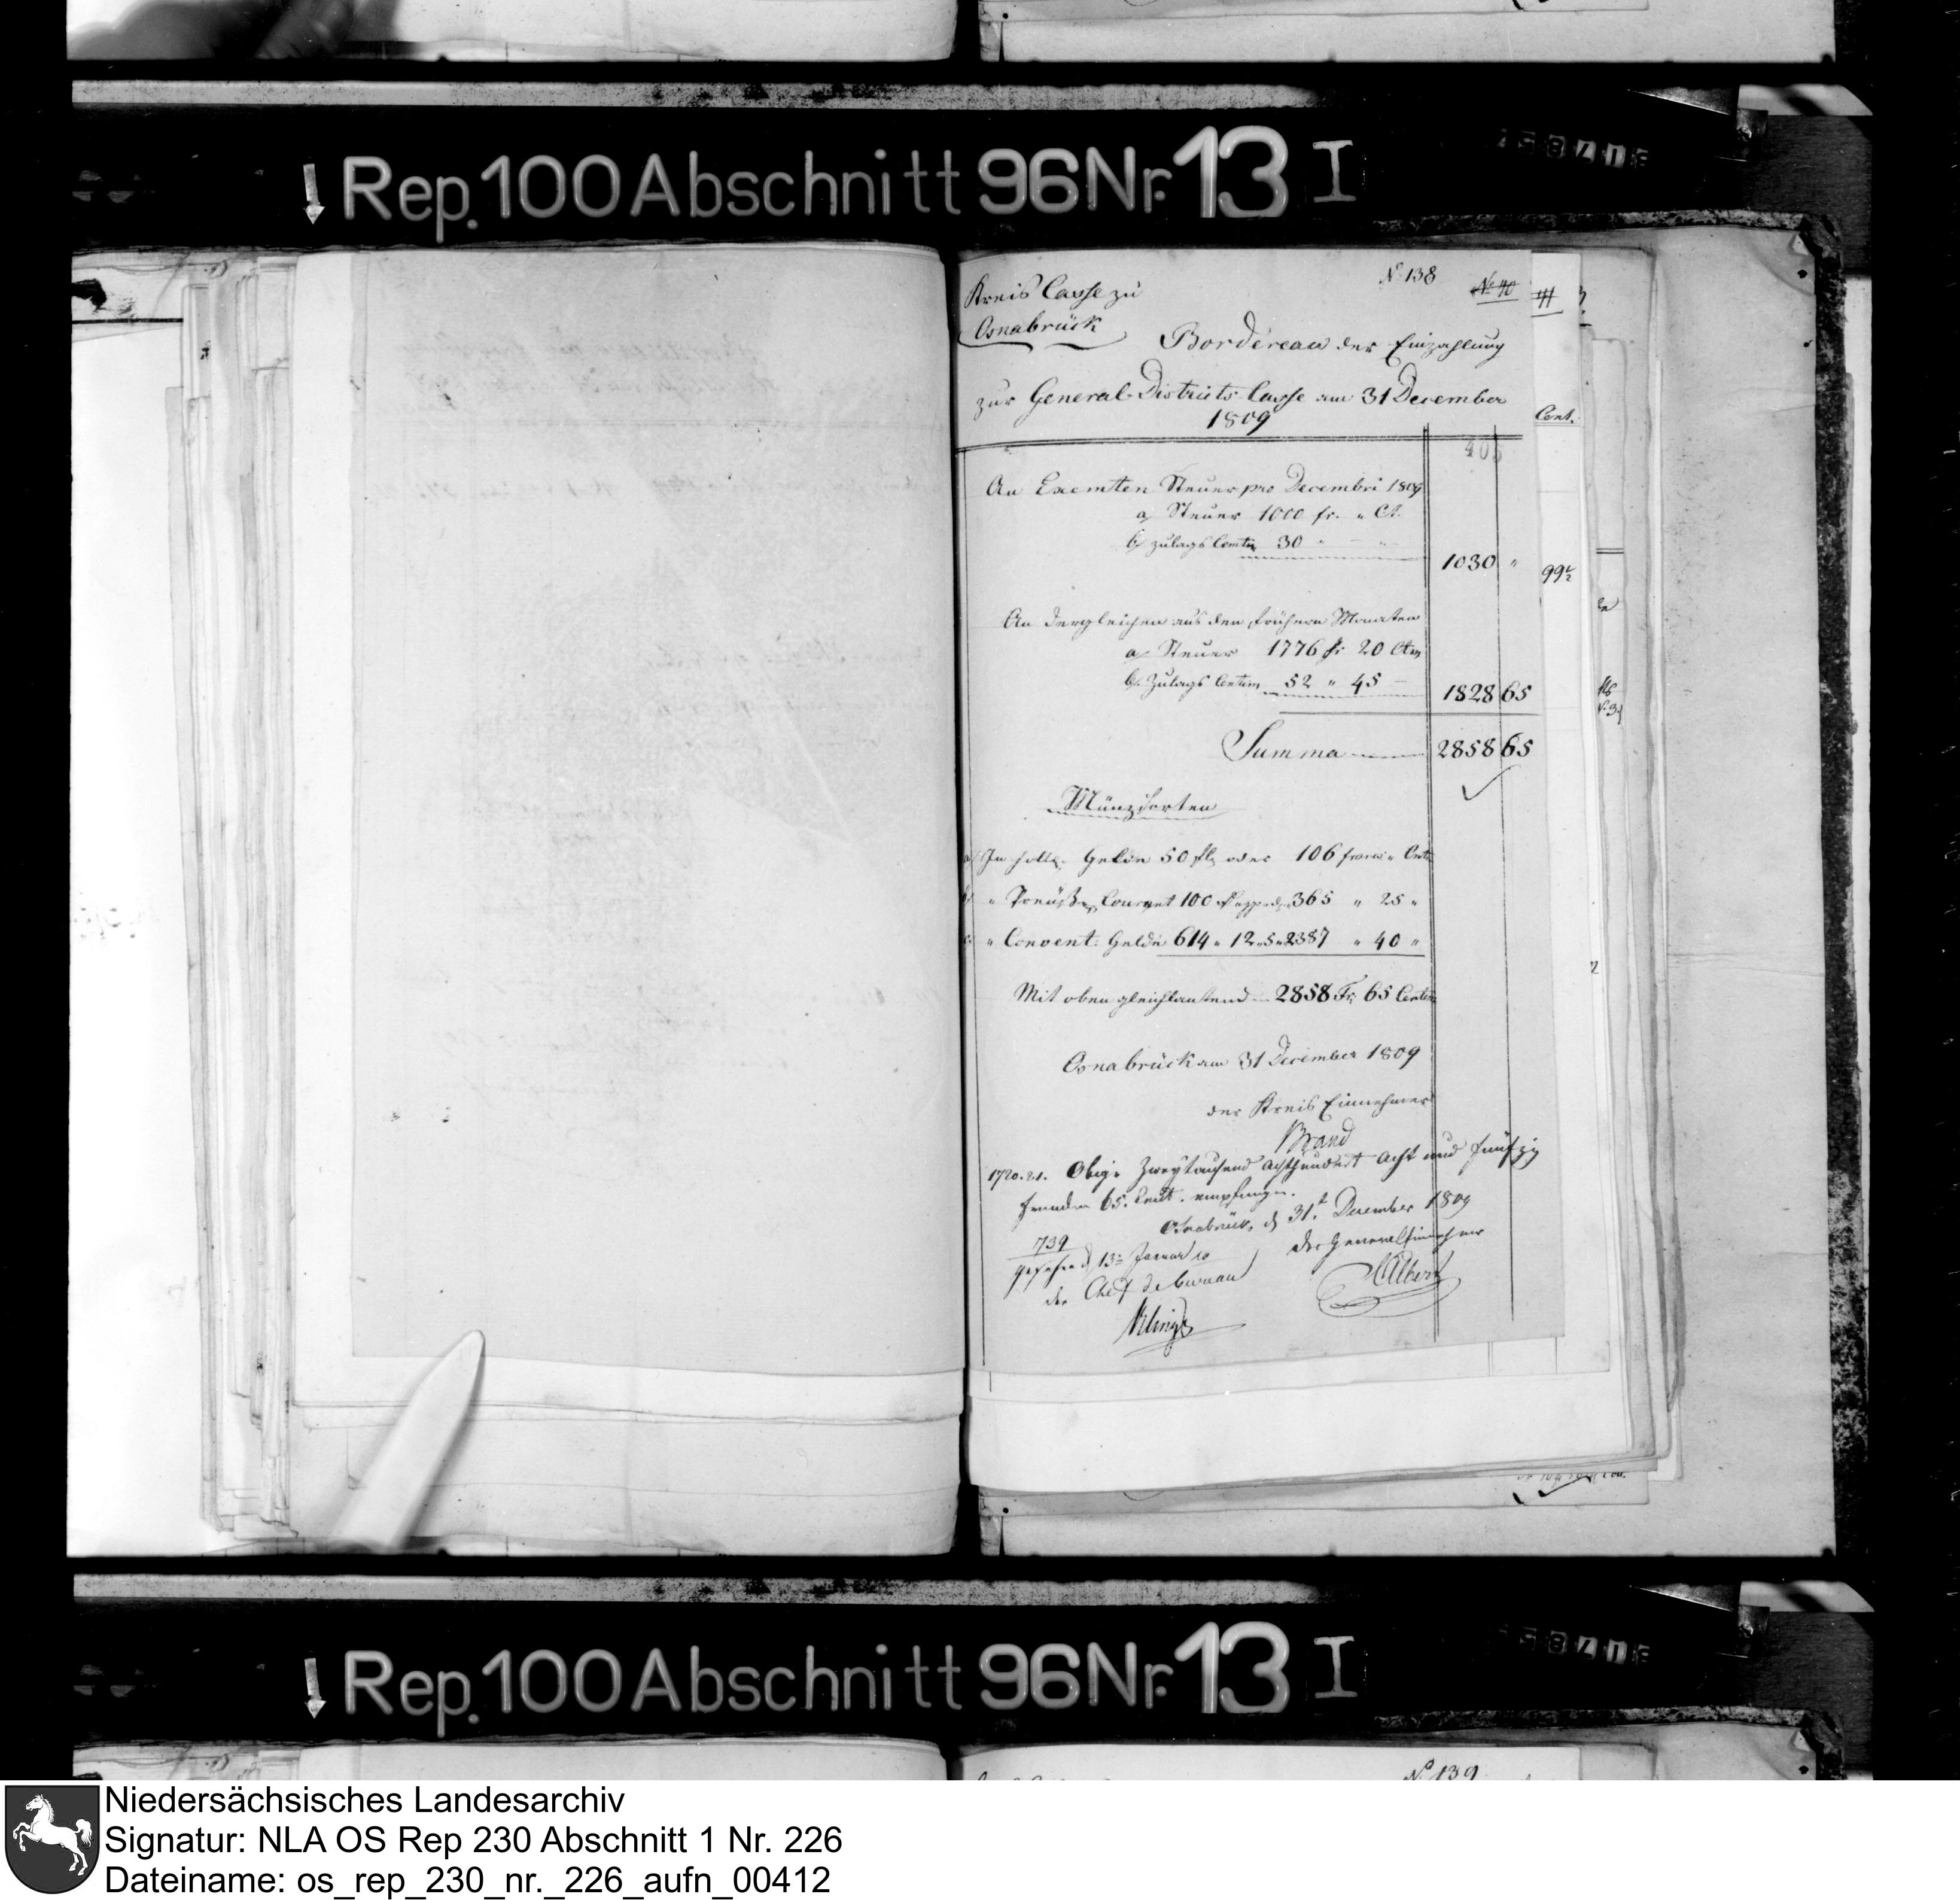 Rep. 100 Abschnitt 96 Nr. 13 I
Kreis Casse zu
Osnabrück
No. 138
No. 40
Bordereau der Einzahlung
zur General-Districts-Casse am 31 December
1809
Cent.
405
An Exemten Steuer pro Decembri 1809
a, Steuer 1000 fr. " Ct.
b, Zulags Centim 30 " — "
1030 "
99½
An dergleichen aus den frühern Monaten
a, Steuer 1776 fr 20 Ctm
b, Zulags Centim 52 " 45 —
1828 65
Summa 2858 65
Münzsorten
a, In holl. Gelde 50 fl oder 106 francs " Cent
b, " Preuß. Courant 100 365 " 25 "
c, " Convent: Gelde 614 " 12 " 5 " 2387 " 40 "
Mit oben gleichlautend 2858 Fr. 65 Centim
Osnabrück am 31 December 1809
der Kreis Einnehmer
Brand
1720.21. Obige Zweytausend achthundert acht und funfzig
Franken 65. Cent. empfangen.
Osnabrück, d 31.t December 1809
739
der Generaleinnehmer
gesehen d 13t Januar 10
der Chef de bureau
Albert
Rep. 100 Abschnitt 96 Nr. 13 I
No. 139
Niedersächsisches Landesarchiv
Signatur: NLA OS Rep 230 Abschnitt 1 Nr. 226
Dateiname: os_rep_230_nr._226_aufn_00412